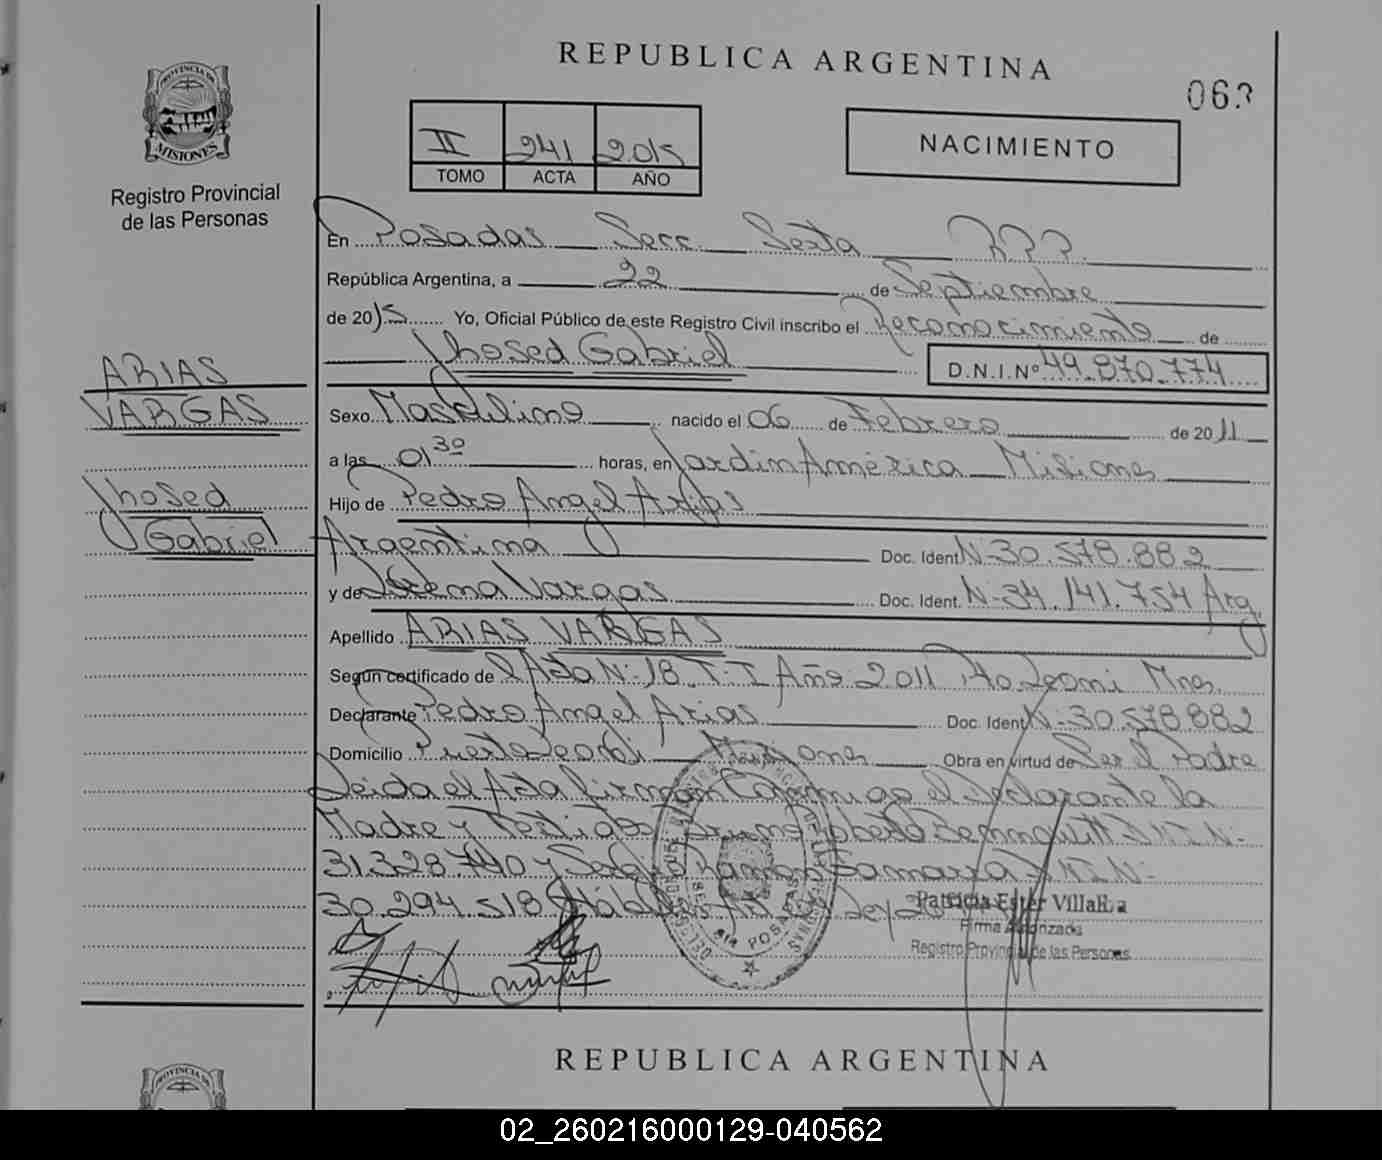 REPUBLICA ARGENTINA
PROVINCIA DE
MISIONES
Registro Provincial
de las Personas
II 241 2015
TOMO ACTA AÑO
NACIMIENTO
En Posadas Secc. Sexta
República Argentina, a 22 de Septiembre
de 2015 Yo, Oficial Público de este Registro Civil inscribo el Reconocimiento de
Jhosed Gabriel D.N.I.Nº 49.870.774
ARIAS
VARGAS
Jhosed
Gabriel
Sexo Masculino nacido el 06 de Febrero de 2011
a las 01 30 horas, en Jardin América Misiones
Hijo de Pedro Angel Arias
Argentina Doc. Ident N-30.578.882
y de Vargas Doc. Ident. N-34.141.754 Arg.
Apellido ARIAS VARGAS
Según certificado de Acta N-18 T-I Año 2011 Pto Leoni Mnes.
Declarante Pedro Angel Arias Doc. Ident N-30.578.882
Domicilio Puerto Leoni Misiones Obra en virtud de Ser el Padre
Leida el Acta firman Conmigo el Declarante la
Madre y Testigos Bruno Roberto D.N.I.N-
31.328.740 y Sergio Ramon Gamarra D.N.I.N-
30.294.518
Patricia Ester Villalba
Firma Autorizada
Registro Provincial de las Personas
REPUBLICA ARGENTINA
PROVINCIA DE
02_260216000129-040562